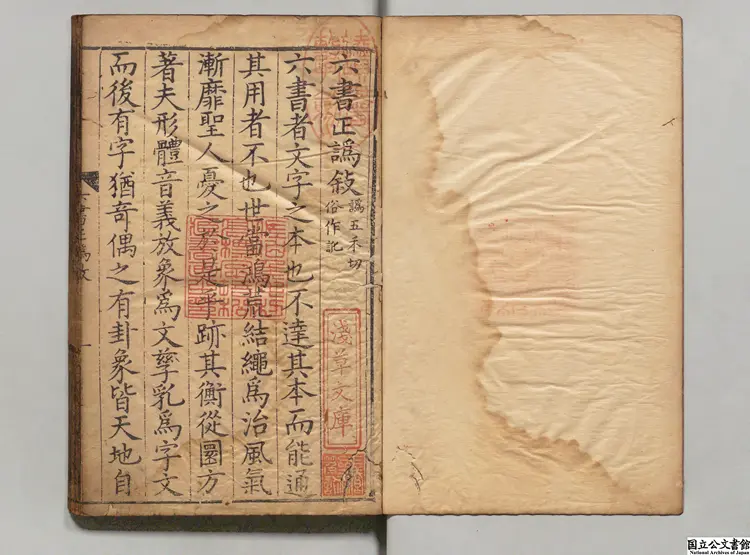 六書正譌敍
譌五禾切
俗作訛
六書者文字之本也不達其本而能通
其用者不也世當鴻荒結繩爲治風氣
漸靡聖人憂之於是乎跡其衡從圜方
著夫形體音義放象爲文孳乳爲字文
而後有字猶奇偶之有卦象皆天地自
淺草文庫
国立公文書館
National Archives of Japan